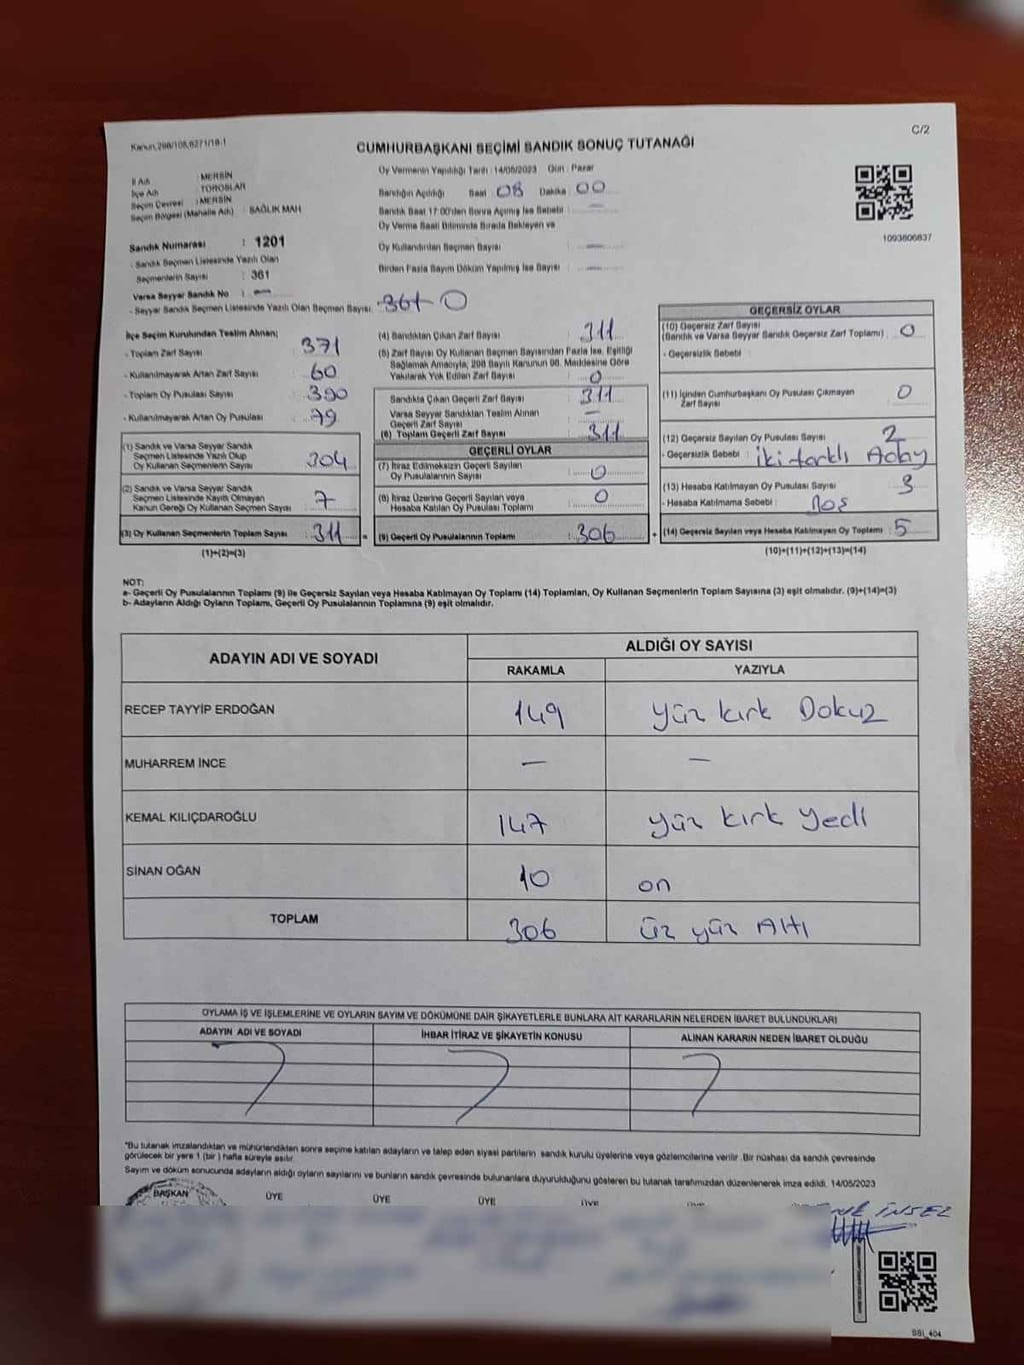 C/2
Kanun,298/108,6271/18-1
CUMHURBAŞKANI SEÇİMİ SANDIK SONUÇ TUTANAĞI
İl Adı : MERSİN
İlçe Adı : TOROSLAR
Seçim Çevresi : MERSİN
Seçim Bölgesi (Mahalle Adı) : SAĞLIK MAH
Sandık Numarası : 1201
- Sandık Seçmen Listesinde Yazılı Olan
Seçmenlerin Sayısı : 361
Varsa Seyyar Sandık No : —
- Seyyar Sandık Seçmen Listesinde Yazılı Olan Seçmen Sayısı: 361+0
Oy Vermenin Yapıldığı Tarih : 14/05/2023 Gün : Pazar
Sandığın Açıldığı Saat 08 Dakika 00
Sandık Saat 17:00'den Sonra Açılmış İse Sebebi : —
Oy Verme Saati Bitiminde Sırada Bekleyen ve
Oy Kullandırılan Seçmen Sayısı : —
Birden Fazla Sayım Döküm Yapılmış İse Sayısı : —
1093806837
İlçe Seçim Kurulundan Teslim Alınan;
- Toplam Zarf Sayısı : 371
- Kullanılmayarak Artan Zarf Sayısı : 60
- Toplam Oy Pusulası Sayısı : 390
- Kullanılmayarak Artan Oy Pusulası : 79
(1) Sandık ve Varsa Seyyar Sandık
Seçmen Listesinde Yazılı Olup
Oy Kullanan Seçmenlerin Sayısı : 304
(2) Sandık ve Varsa Seyyar Sandık
Seçmen Listesinde Kayıtlı Olmayan
Kanun Gereği Oy Kullanan Seçmen Sayısı : 7
(3) Oy Kullanan Seçmenlerin Toplam Sayısı : 311
(1)+(2)=(3)
(4) Sandıktan Çıkan Zarf Sayısı : 311
(5) Zarf Sayısı Oy Kullanan Seçmen Sayısından Fazla İse, Eşitliği
Sağlamak Amacıyla; 298 Sayılı Kanunun 98. Maddesine Göre
Yakılarak Yok Edilen Zarf Sayısı : 0
Sandıkta Çıkan Geçerli Zarf Sayısı : 311
Varsa Seyyar Sandıktan Teslim Alınan
Geçerli Zarf Sayısı : —
(6) Toplam Geçerli Zarf Sayısı : 311
GEÇERLİ OYLAR
(7) İtiraz Edilmeksizin Geçerli Sayılan
Oy Pusulalarının Sayısı : 0
(8) İtiraz Üzerine Geçerli Sayılan veya
Hesaba Katılan Oy Pusulası Toplamı : 0
= (9) Geçerli Oy Pusulalarının Toplamı : 306
GEÇERSİZ OYLAR
(10) Geçersiz Zarf Sayısı
(Sandık ve Varsa Seyyar Sandık Geçersiz Zarf Toplamı) : 0
- Geçersizlik Sebebi :
(11) İçinden Cumhurbaşkanı Oy Pusulası Çıkmayan
Zarf Sayısı : 0
(12) Geçersiz Sayılan Oy Pusulası Sayısı : 2
- Geçersizlik Sebebi : iki farklı Aday
(13) Hesaba Katılmayan Oy Pusulası Sayısı : 3
- Hesaba Katılmama Sebebi : Boş
+ (14) Geçersiz Sayılan veya Hesaba Katılmayan Oy Toplamı : 5
(10)+(11)+(12)+(13)=(14)
NOT:
a- Geçerli Oy Pusulalarının Toplamı (9) ile Geçersiz Sayılan veya Hesaba Katılmayan Oy Toplamı (14) Toplamları, Oy Kullanan Seçmenlerin Toplam Sayısına (3) eşit olmalıdır. (9)+(14)=(3)
b- Adayların Aldığı Oyların Toplamı, Geçerli Oy Pusulalarının Toplamına (9) eşit olmalıdır.
ADAYIN ADI VE SOYADI ALDIĞI OY SAYISI
RAKAMLA YAZIYLA
RECEP TAYYİP ERDOĞAN 149 yüz kırk Dokuz
MUHARREM İNCE — —
KEMAL KILIÇDAROĞLU 147 yüz kırk yedi
SİNAN OĞAN 10 on
TOPLAM 306 üz yüz Altı
OYLAMA İŞ VE İŞLEMLERİNE VE OYLARIN SAYIM VE DÖKÜMÜNE DAİR ŞİKAYETLERLE BUNLARA AİT KARARLARIN NELERDEN İBARET BULUNDUKLARI
ADAYIN ADI VE SOYADI İHBAR İTİRAZ VE ŞİKAYETİN KONUSU ALINAN KARARIN NEDEN İBARET OLDUĞU
"Bu tutanak imzalandıktan ve mühürlendikten sonra seçime katılan adayların ve talep eden siyasi partilerin sandık kurulu üyelerine veya gözlemcilerine verilir. Bir nüshası da sandık çevresinde
görülecek bir yere 1 (bir) hafta süreyle asılır.
Sayım ve döküm sonucunda adayların aldığı oyların sayılarını ve bunların sandık çevresinde bulunanlara duyurulduğunu gösteren bu tutanak tarafımızdan düzenlenerek imza edildi. 14/05/2023
BAŞKAN ÜYE ÜYE ÜYE ÜYE
İNSEL
SSI_404